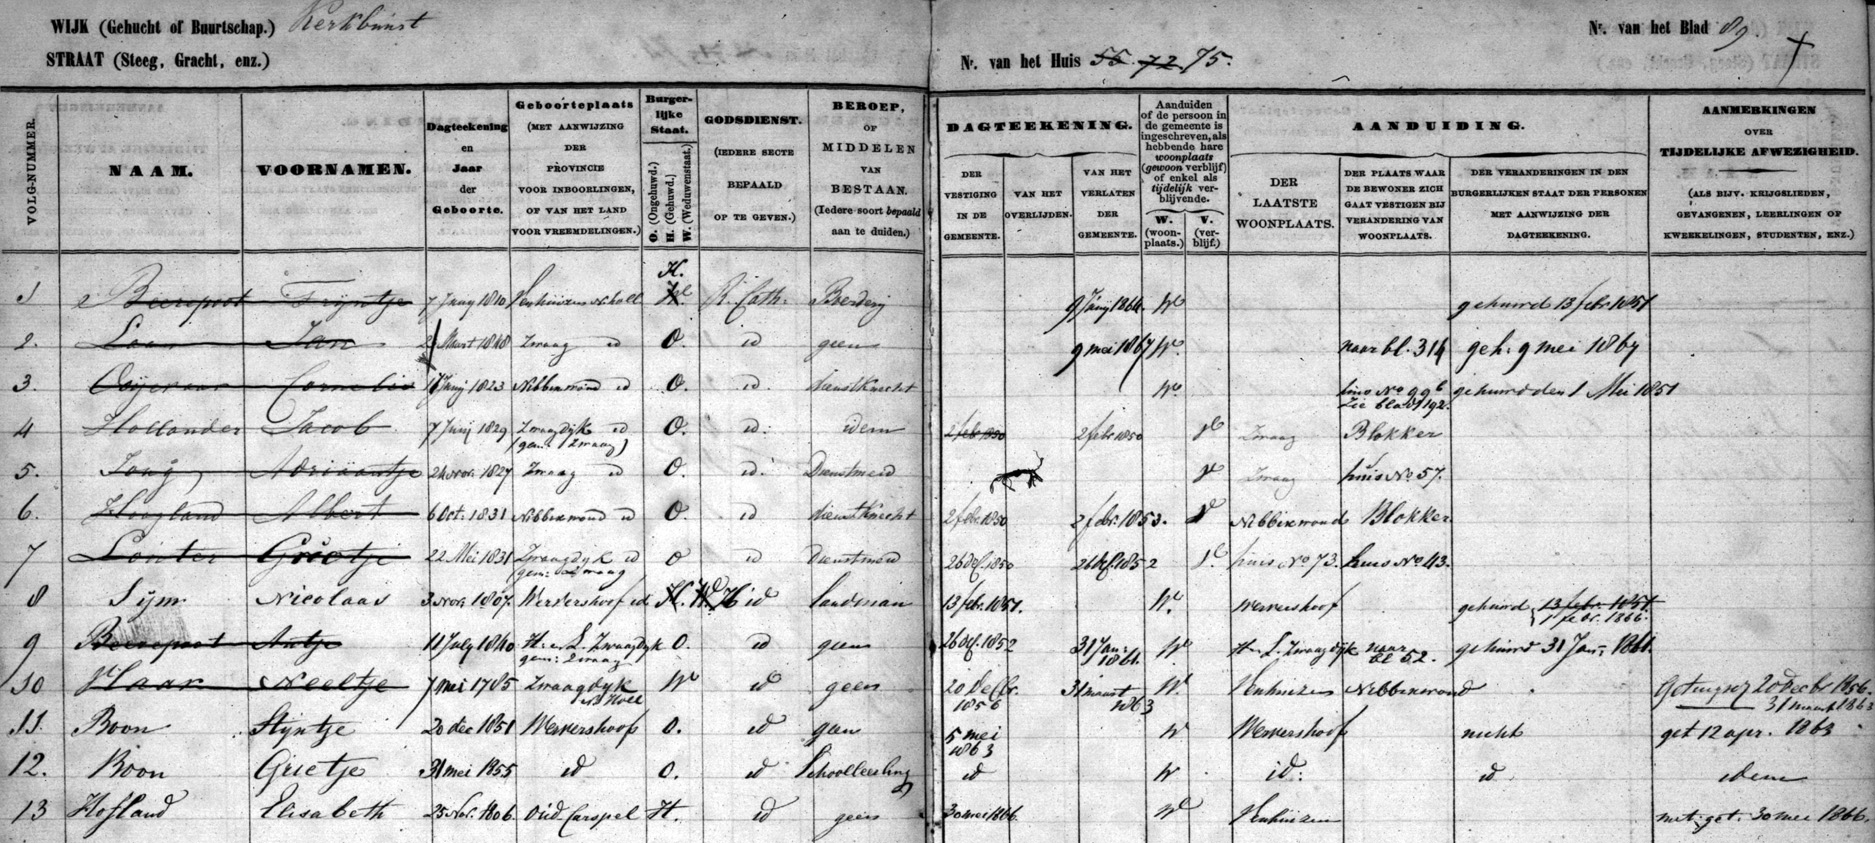 WIJK (Gehucht of Buurtschap.) Kerkbuurt
STRAAT (Steeg, Gracht, enz.)
Nr. van het Blad 89
Nr. van het Huis 56. 72 75.
VOLG-NUMMER.
NAAM.
VOORNAMEN.
Dagteekening
en
Jaar
der
Geboorte.
Geboorteplaats
(MET AANWIJZING
DER
PROVINCIE
VOOR INBOORLINGEN,
OF VAN HET LAND
VOOR VREEMDELINGEN.)
Burger-
lijke
Staat.
O. (Ongehuwd.)
H. (Gehuwd.)
W. (Weduwenstaat.)
GODSDIENST.
(IEDERE SECTE
BEPAALD
OP TE GEVEN.)
BEROEP,
OF
MIDDELEN
VAN
BESTAAN.
(Iedere soort bepaald
aan te duiden.)
DAGTEEKENING.
DER
VESTIGING
IN DE
GEMEENTE.
VAN HET
OVERLIJDEN.
VAN HET
VERLATEN
DER
GEMEENTE.
Aanduiden
of de persoon in
de gemeente is
ingeschreven, als
hebbende hare
woonplaats
(gewoon verblijf)
of enkel als
tijdelijk ver-
blijvende.
W.
(woon-
plaats.)
V.
(ver-
blijf.)
AANDUIDING.
DER
LAATSTE
WOONPLAATS.
DER PLAATS WAAR
DE BEWONER ZICH
GAAT VESTIGEN BIJ
VERANDERING VAN
WOONPLAATS.
DER VERANDERINGEN IN DEN
BURGERLIJKEN STAAT DER PERSONEN
MET AANWIJZING DER
DAGTEEKENING.
AANMERKINGEN
OVER
TIJDELIJKE AFWEZIGHEID.
(ALS BIJV. KRIJGSLIEDEN,
GEVANGENEN, LEERLINGEN OF
KWEEKELINGEN, STUDENTEN, ENZ.)
1 Beerepoot Trijntje 7 Juny 1810 Venhuizen N. holl H. R. Cath: Boerderij 9 Junij 1864 W gehuwd 13 febr 1851
2. Laar Jan Maart 1848 Zwaag id O. id geen 9 mei 1867 W. naar bl. 314 geh. 9 mei 1867
3. Cornelis Junij 1823 Nibbixwoud id O. id. dienstknecht W. huis No 99b gehuwd den 1 Mei 1851
Zie blad 192.
4 Hollander Jacob 7 Junij 1829 Zwaagdijk id O. id: idem 2 febr 1850 2 febr 1850 V Zwaag Blokker
(gem: Zwaag)
5. Jong Adriaantje 24 nov. 1827 Zwaag id O. id. Dienstmeid V Zwaag huis No 57.
6. Hoogland Albert 6 Oct. 1831 Nibbixwoud id O. id dienstknecht 2 febr. 1850 2 febr. 1853. V Nibbixwoud Blokker
7 Grietje 22 Mei 1831 Zwaagdijk id O id Dienstmeid 26 dec. 1850 26 dec. 1852 V. huis No 73. huis No 43.
gem: Zwaag
8 Sijm Nicolaas 3 Nov. 1807. Wervershoof id H. Wd H id landman 13 febr. 1851. W. Wervershoof gehuwd 13 febr. 1851
1 febr. 1866.
9 Beerepoot Antje 11 July 1840 H. en L. Zwaagdyk O. id geen 26 dec. 1852 31 Jan: 1861. W H. L. Zwaagdijk naar bl 52. gehuwd 31 Jan: 1861.
gem: Zwaag
10 Haar Neeltje 7 mei 1785 Zwaagdijk W id geen 20 Decbr. 1856 31 maart 1863 W. Venhuizen Nibbixwoud 20 Decbr 1856
N. Holl 31 maart 1863
11. Boon Stijntje 20 dec 1851 Wervershoof O. id geen 5 mei 1863 W Wervershoof nicht get 12 apr. 1863
12. Boon Grietje 31 mei 1855 id O. id Schoolleerling id W id: id idem
13 Hofland Elisabeth 25 Nov. 1806. Oud Carspel H. id geen 30 mei 1866. W Venhuizen met get. 30 mei 1866.